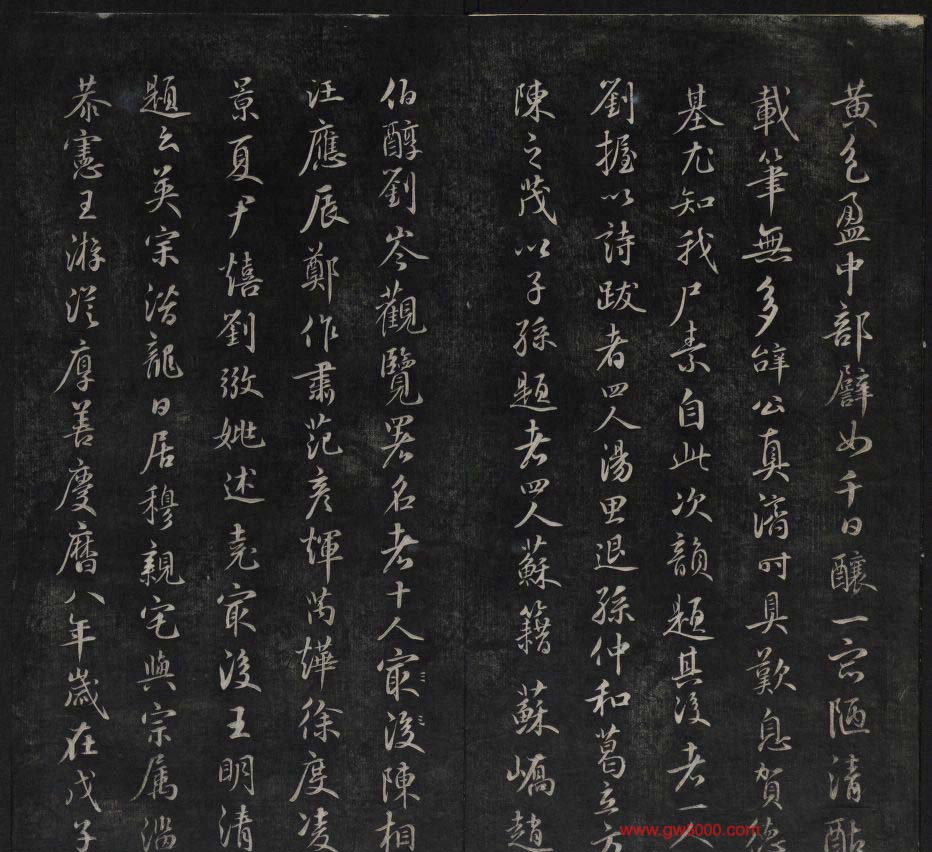 黃色盈中部譬如千日釀一穴陋清酤
載筆無多辞公真濟時具歎息賀德
基尤知我尸素自此次韻題其後者一人
劉握以詩跋者四人湯思退孫仲和葛立方
陳之茂以子孫題者四人蘇籍蘇嶠趙
伯醇劉岑觀覽署名者十人最後陳相
汪應辰鄭作肅范彥輝萬燁徐度凌
景夏尹熺劉徽姚述堯最後王明清
題云英宗潛龍日居穆親宅與宗属潘
恭憲王游從厚善慶曆八年歲在戊子
www.gw5000.com